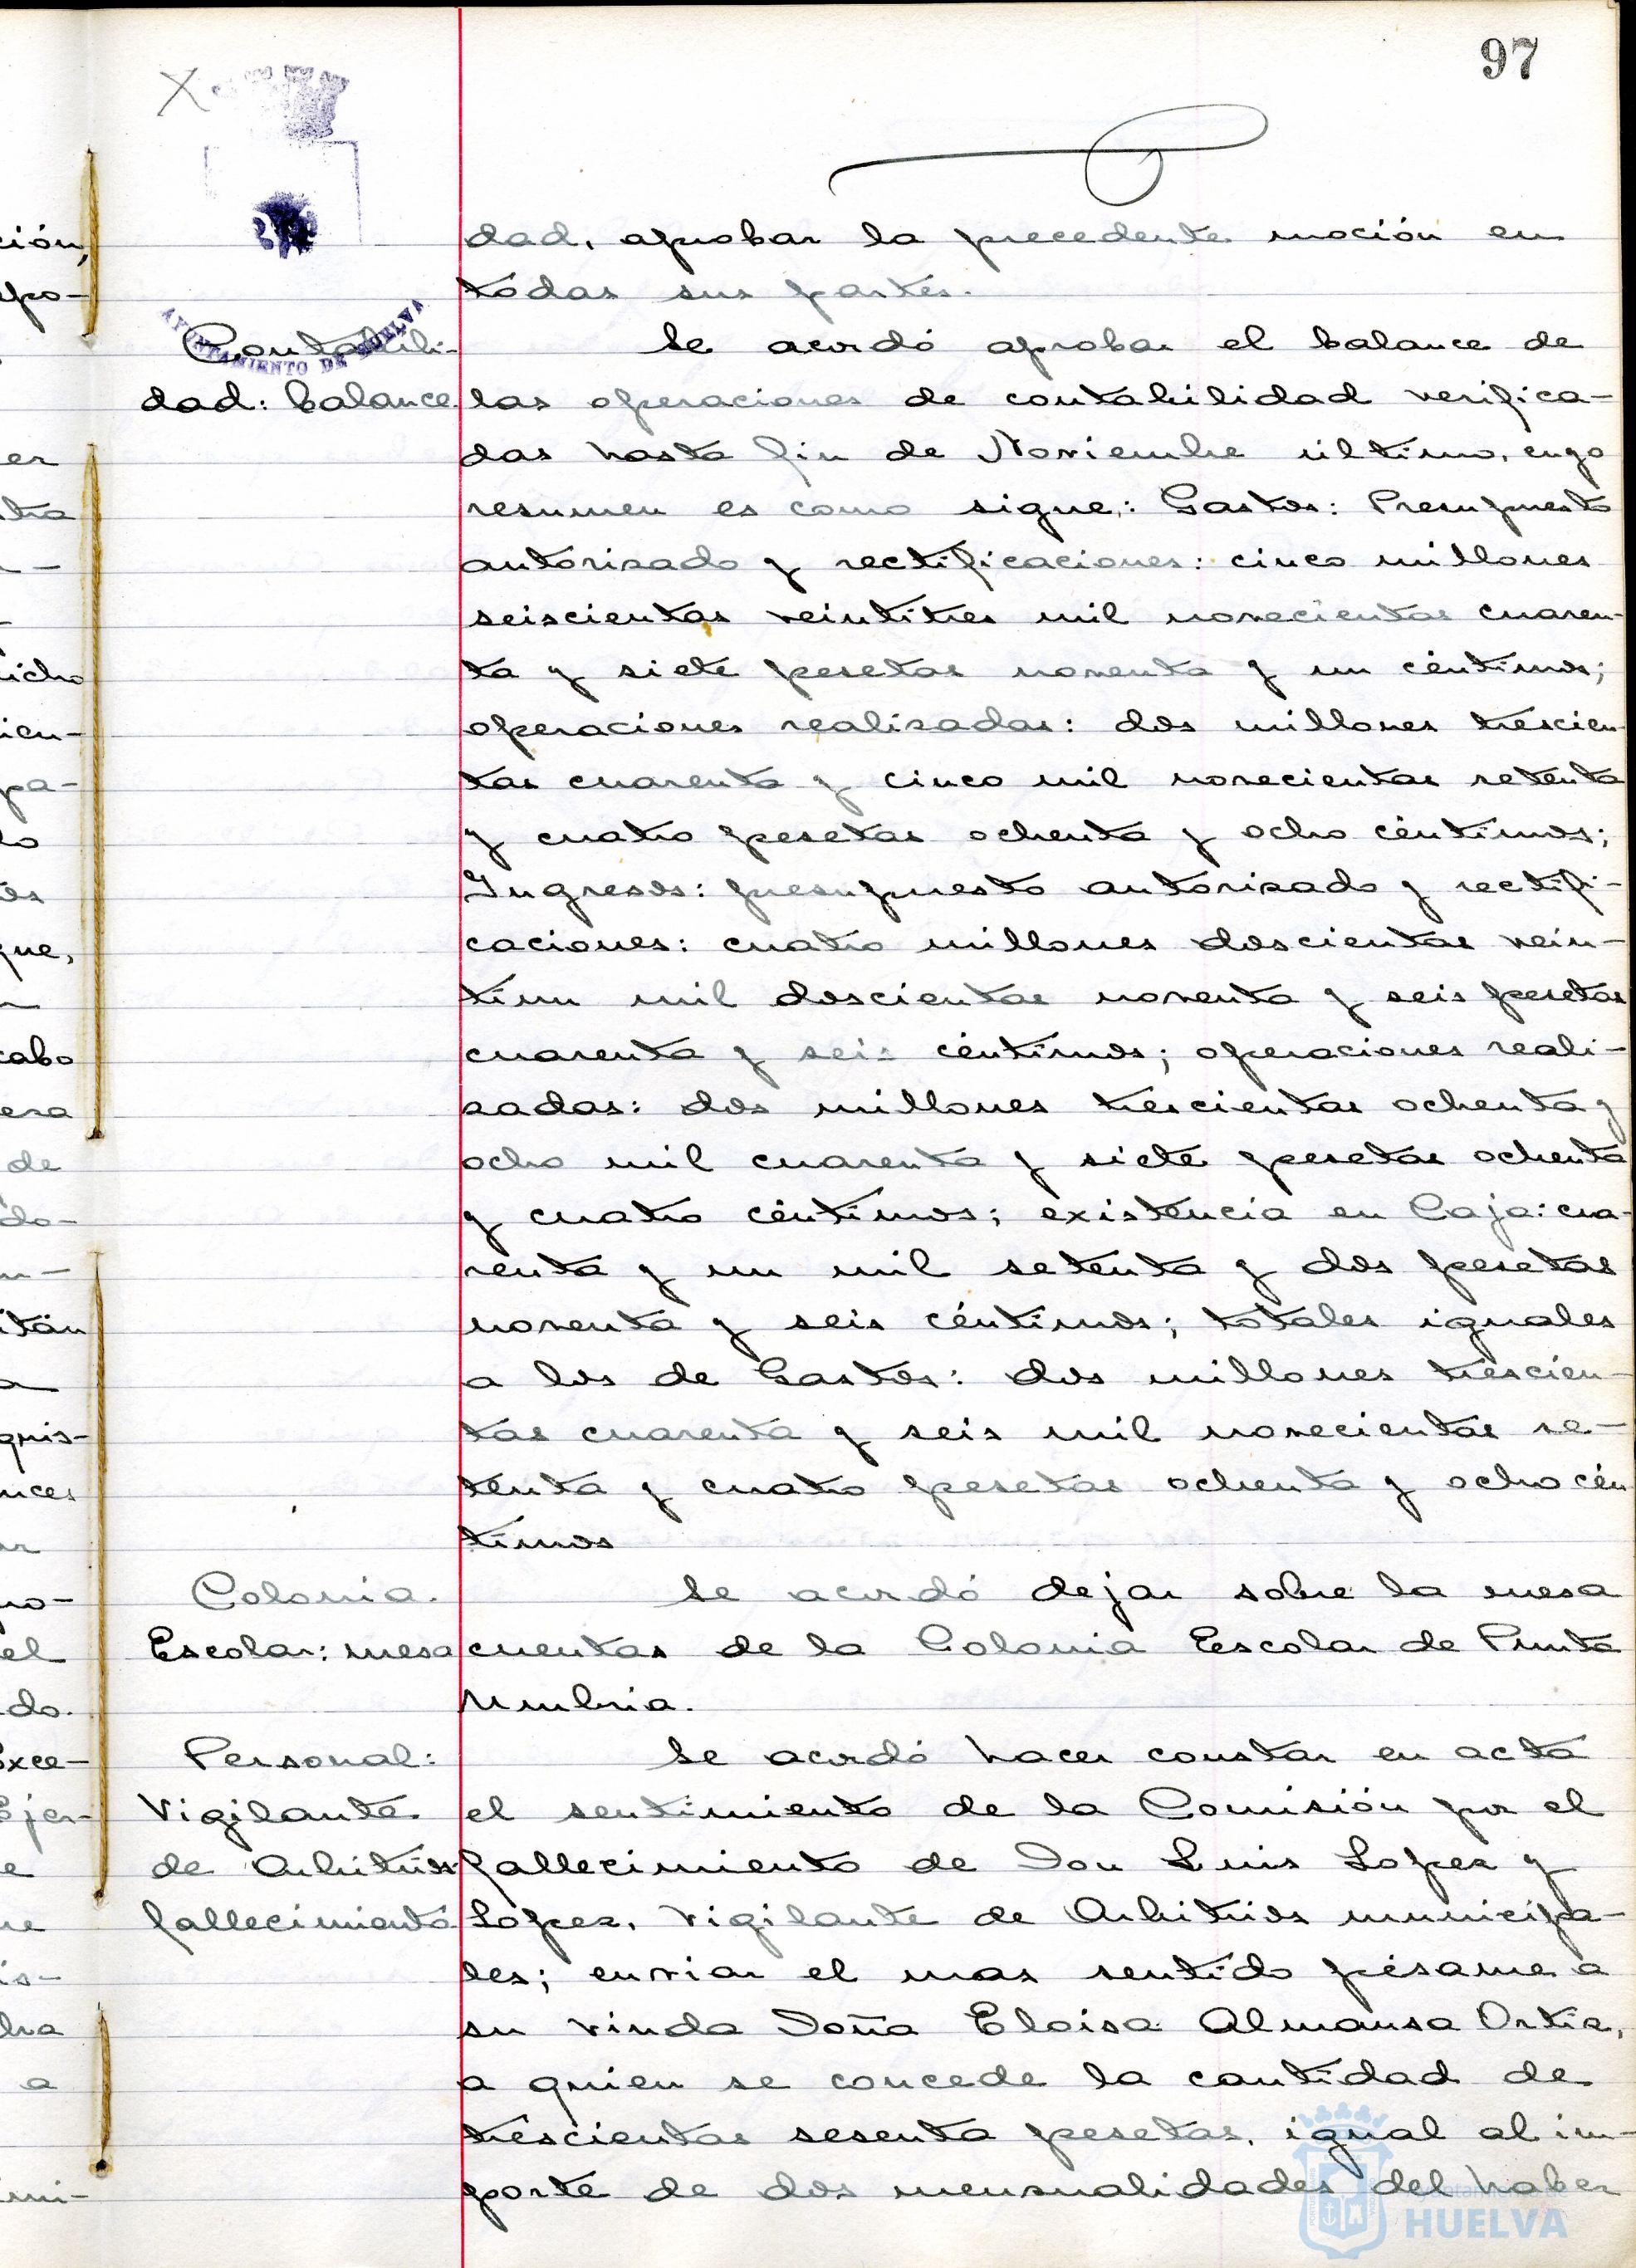 97
AYUNTAMIENTO DE HUELVA
dad, aprobar la precedente moción en
todas sus partes.
Contabili-
dad: balance.
Se acordó aprobar el balance de
las operaciones de contabilidad verifica-
das hasta fin de Noviembre último, cuyo
resumen es como sigue: Gastos: Presupuesto
autorizado y rectificaciones: cinco millones
seiscientas veintitres mil novecientas cuaren-
ta y siete pesetas noventa y un céntimos;
operaciones realizadas: dos millones trescien-
tas cuarenta y cinco mil novecientas setenta
y cuatro pesetas ochenta y ocho céntimos;
Ingresos: presupuesto autorizado y rectifi-
caciones: cuatro millones doscientas vein-
tiun mil doscientas noventa y seis pesetas
cuarenta y seis céntimos; operaciones reali-
zadas: dos millones trescientas ochenta y
ocho mil cuarenta y siete pesetas ochenta
y cuatro céntimos; existencia en Caja: cua-
renta y un mil setenta y dos pesetas
noventa y seis céntimos; totales iguales
a los de Gastos: dos millones trescien-
tas cuarenta y seis mil novecientas se-
tenta y cuatro pesetas ochenta y ocho cén
timos
Colonia.
Escolar: mesa
Se acordó dejar sobre la mesa
cuentas de la Colonia Escolar de Punta
Umbria.
Personal:
Vigilante.
de Arbitrios
fallecimiento
Se acordó hacer constar en acta
el sentimiento de la Comisión por el
fallecimiento de Don Luis Lopez y
Lopez, Vigilante de Arbitrios municipa-
les; enviar el mas sentido pésame a
su viuda Doña Eloisa Almansa Ortiz,
a quien se concede la cantidad de
trescientas sesenta pesetas, igual al im-
porte de dos mensualidades del haber
HUELVA